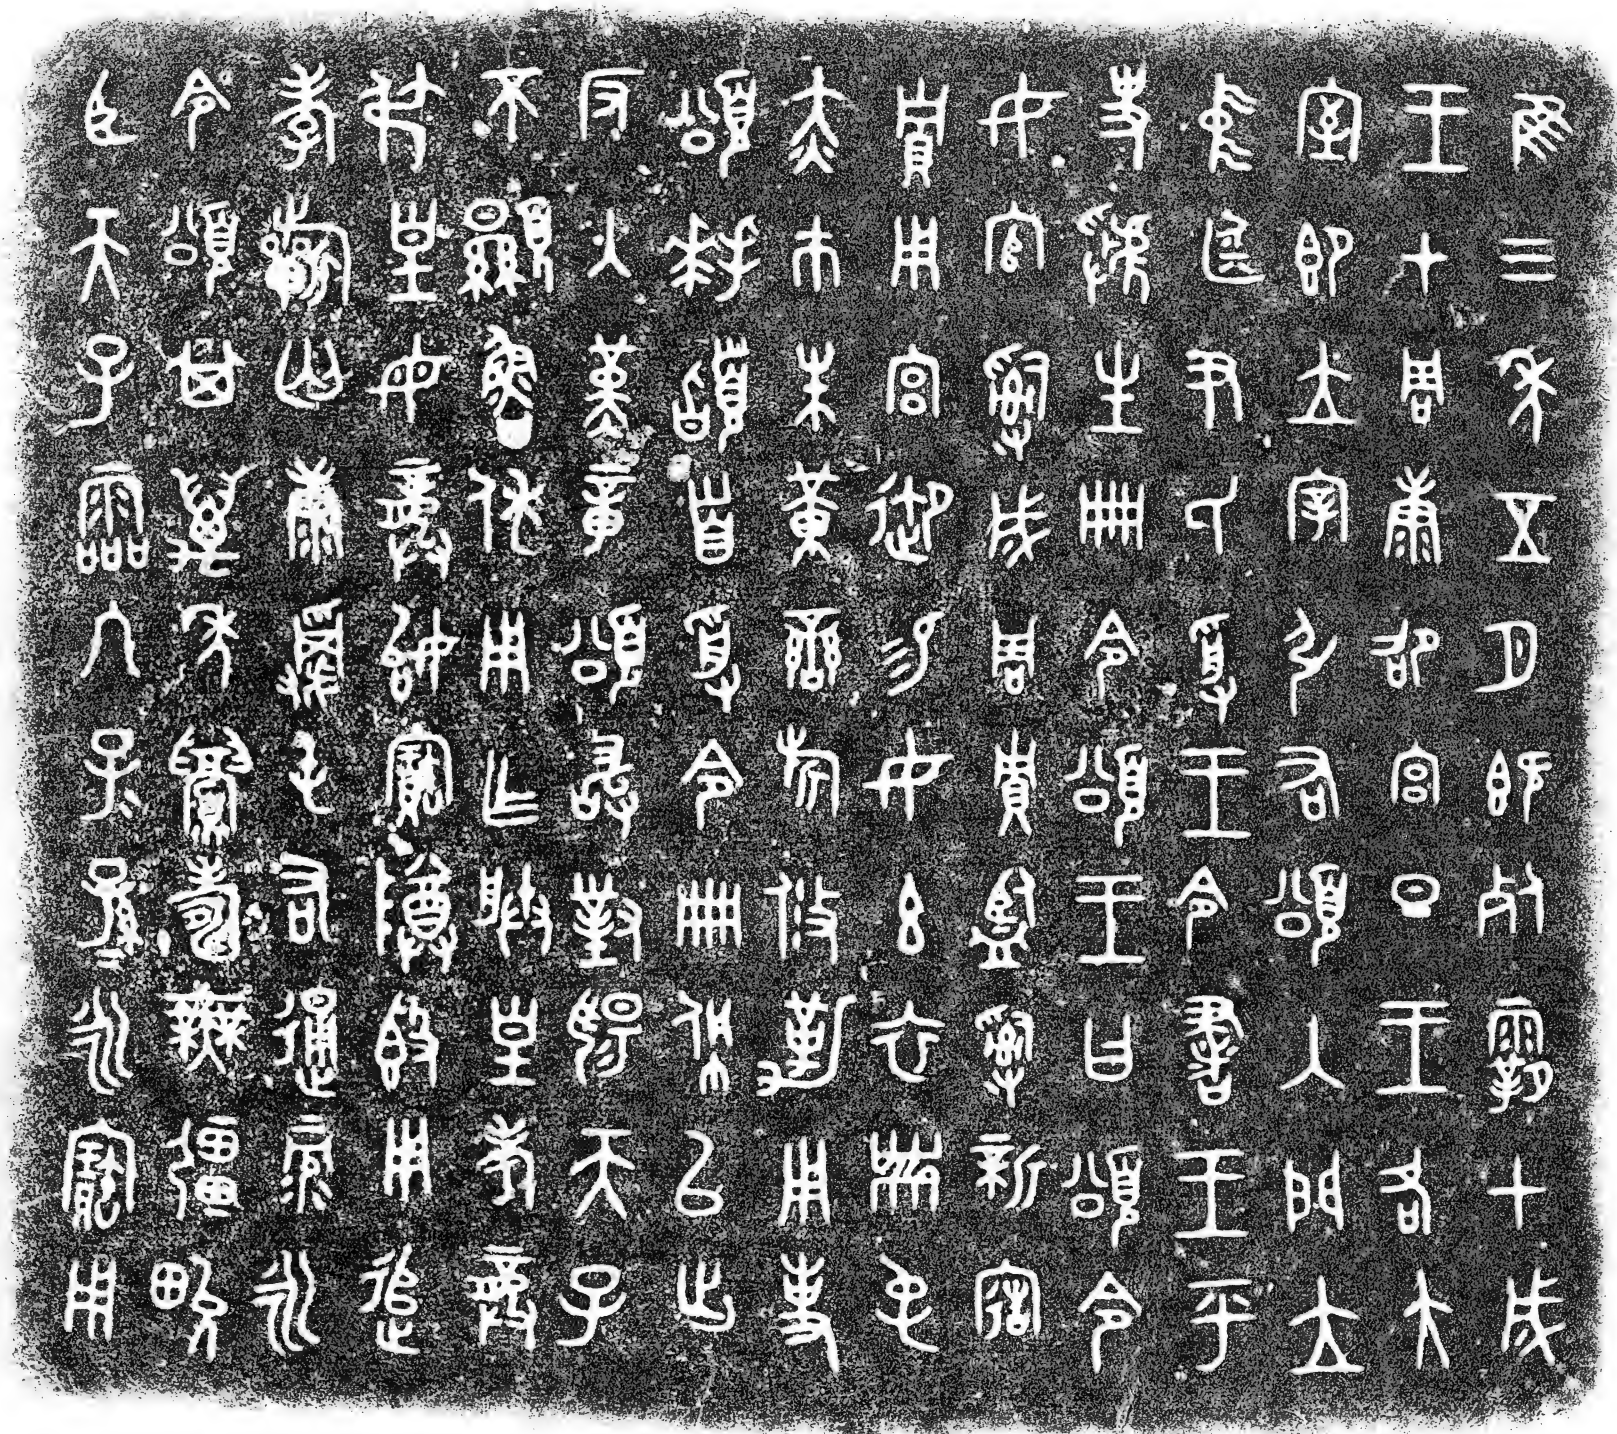 隹三年五月既死霸甲戌
王才周康卲宮旦王各大
室即立宰引右頌入門立
中廷尹氏受王令書王乎
史虢生冊令頌王曰頌令
女官𤔲成周貯監𤔲新寤
貯用宮御易女玄衣黹屯
赤巿朱黃䜌旂攸勒用事
頌拜𩒨首受令冊佩㠯出
反入堇章頌敢對揚天子
不顯魯休用乍朕皇考龏
弔皇母龏始寶尊𣪘用追
孝𣄨匃康𩛥屯右通彔永
令頌其萬年眉壽無疆畯
臣天子霝冬子=孫=永寶用